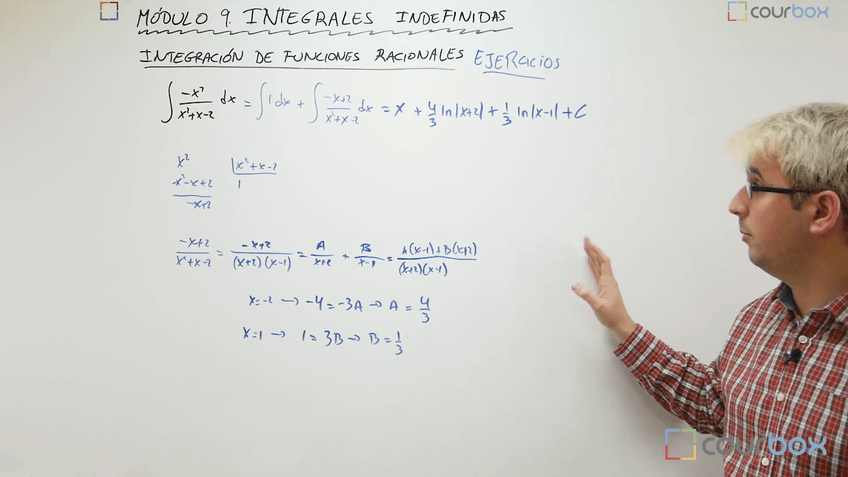 MÓDULO 9. INTEGRALES INDEFINIDAS
courbox
INTEGRACIÓN DE FUNCIONES RACIONALES EJERCICIOS
∫ -x²/(x²+x-2) dx = ∫ 1 dx + ∫ (-x+2)/(x²+x-2) dx = x + 4/3 ln|x+2| + 1/3 ln|x-1| + C
x² |x²+x-2
-x²-x+2 1
-x+2
(-x+2)/(x²+x-2) = (-x+2)/((x+2)(x-1)) = A/(x+2) + B/(x-1) = (A(x-1)+B(x+2))/((x+2)(x-1))
x=-2 → -4=-3A → A = 4/3
x=1 → 1=3B → B = 1/3
courbox